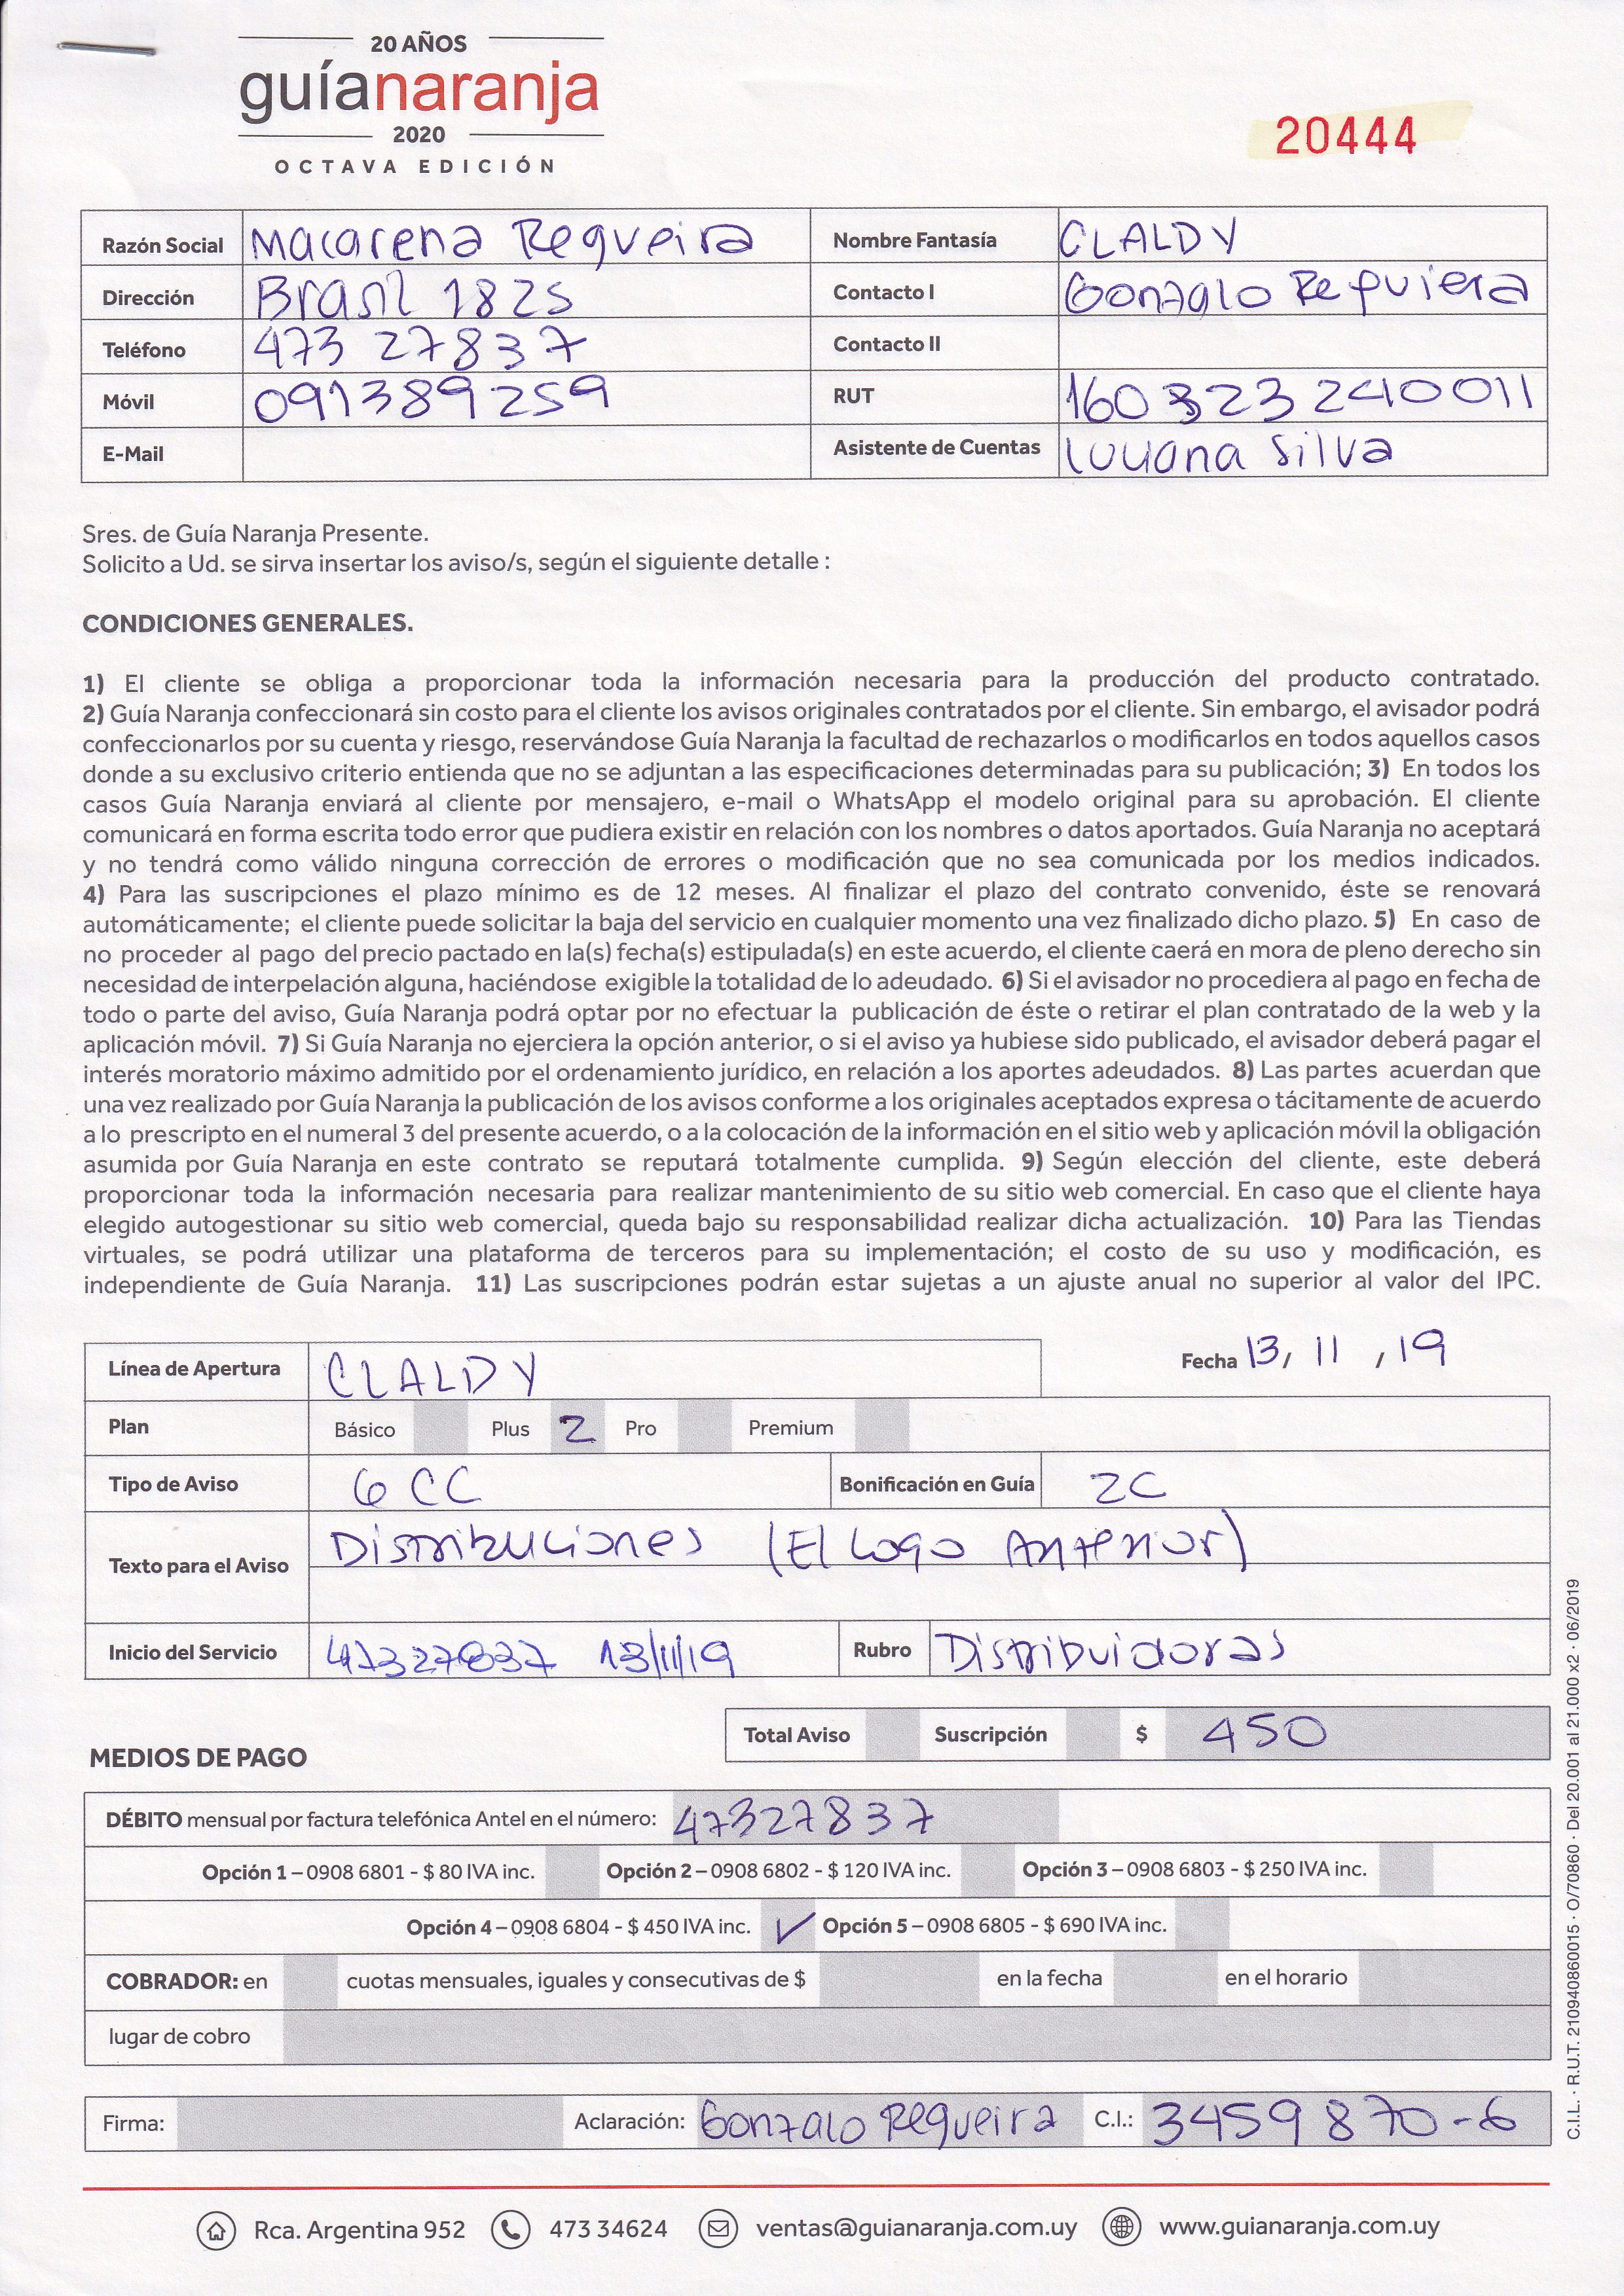 20 AÑOS
guíanaranja
2020
OCTAVA EDICIÓN
20444
Razón Social Macarena Regueira Nombre Fantasía CLALDY
Dirección Brasil 1825 Contacto I Gonzalo Requiera
Teléfono 473 27837 Contacto II
Móvil 091389259 RUT 160323240011
E-Mail Asistente de Cuentas Luciana Silva
Sres. de Guía Naranja Presente.
Solicito a Ud. se sirva insertar los aviso/s, según el siguiente detalle :
CONDICIONES GENERALES.
1) El cliente se obliga a proporcionar toda la información necesaria para la producción del producto contratado.
2) Guía Naranja confeccionará sin costo para el cliente los avisos originales contratados por el cliente. Sin embargo, el avisador podrá
confeccionarlos por su cuenta y riesgo, reservándose Guía Naranja la facultad de rechazarlos o modificarlos en todos aquellos casos
donde a su exclusivo criterio entienda que no se adjuntan a las especificaciones determinadas para su publicación; 3) En todos los
casos Guía Naranja enviará al cliente por mensajero, e-mail o WhatsApp el modelo original para su aprobación. El cliente
comunicará en forma escrita todo error que pudiera existir en relación con los nombres o datos aportados. Guía Naranja no aceptará
y no tendrá como válido ninguna corrección de errores o modificación que no sea comunicada por los medios indicados.
4) Para las suscripciones el plazo mínimo es de 12 meses. Al finalizar el plazo del contrato convenido, éste se renovará
automáticamente; el cliente puede solicitar la baja del servicio en cualquier momento una vez finalizado dicho plazo. 5) En caso de
no proceder al pago del precio pactado en la(s) fecha(s) estipulada(s) en este acuerdo, el cliente caerá en mora de pleno derecho sin
necesidad de interpelación alguna, haciéndose exigible la totalidad de lo adeudado. 6) Si el avisador no procediera al pago en fecha de
todo o parte del aviso, Guía Naranja podrá optar por no efectuar la publicación de éste o retirar el plan contratado de la web y la
aplicación móvil. 7) Si Guía Naranja no ejerciera la opción anterior, o si el aviso ya hubiese sido publicado, el avisador deberá pagar el
interés moratorio máximo admitido por el ordenamiento jurídico, en relación a los aportes adeudados. 8) Las partes acuerdan que
una vez realizado por Guía Naranja la publicación de los avisos conforme a los originales aceptados expresa o tácitamente de acuerdo
a lo prescripto en el numeral 3 del presente acuerdo, o a la colocación de la información en el sitio web y aplicación móvil la obligación
asumida por Guía Naranja en este contrato se reputará totalmente cumplida. 9) Según elección del cliente, este deberá
proporcionar toda la información necesaria para realizar mantenimiento de su sitio web comercial. En caso que el cliente haya
elegido autogestionar su sitio web comercial, queda bajo su responsabilidad realizar dicha actualización. 10) Para las Tiendas
virtuales, se podrá utilizar una plataforma de terceros para su implementación; el costo de su uso y modificación, es
independiente de Guía Naranja. 11) Las suscripciones podrán estar sujetas a un ajuste anual no superior al valor del IPC.
Línea de Apertura CLALDY Fecha 13/ 11 /19
Plan Básico Plus 2 Pro Premium
Tipo de Aviso 6 CC Bonificación en Guía 2C
Texto para el Aviso Distribuciones (El Logo Anterior)
Inicio del Servicio 47327837 13/11/19 Rubro Distribuidoras
Total Aviso Suscripción $ 450
MEDIOS DE PAGO
DÉBITO mensual por factura telefónica Antel en el número: 47327837
Opción 1 – 0908 6801 - $ 80 IVA inc. Opción 2 – 0908 6802 - $ 120 IVA inc. Opción 3 – 0908 6803 - $ 250 IVA inc.
Opción 4 – 0908 6804 - $ 450 IVA inc. ✓ Opción 5 – 0908 6805 - $ 690 IVA inc.
COBRADOR: en cuotas mensuales, iguales y consecutivas de $ en la fecha en el horario
lugar de cobro
Firma: Aclaración: Gonzalo Regueira C.I.: 3459870-6
C.I.L. · R.U.T. 210940860015 · O/70860 · Del 20.001 al 21.000 x2 · 06/2019
Rca. Argentina 952 473 34624 ventas@guianaranja.com.uy www.guianaranja.com.uy